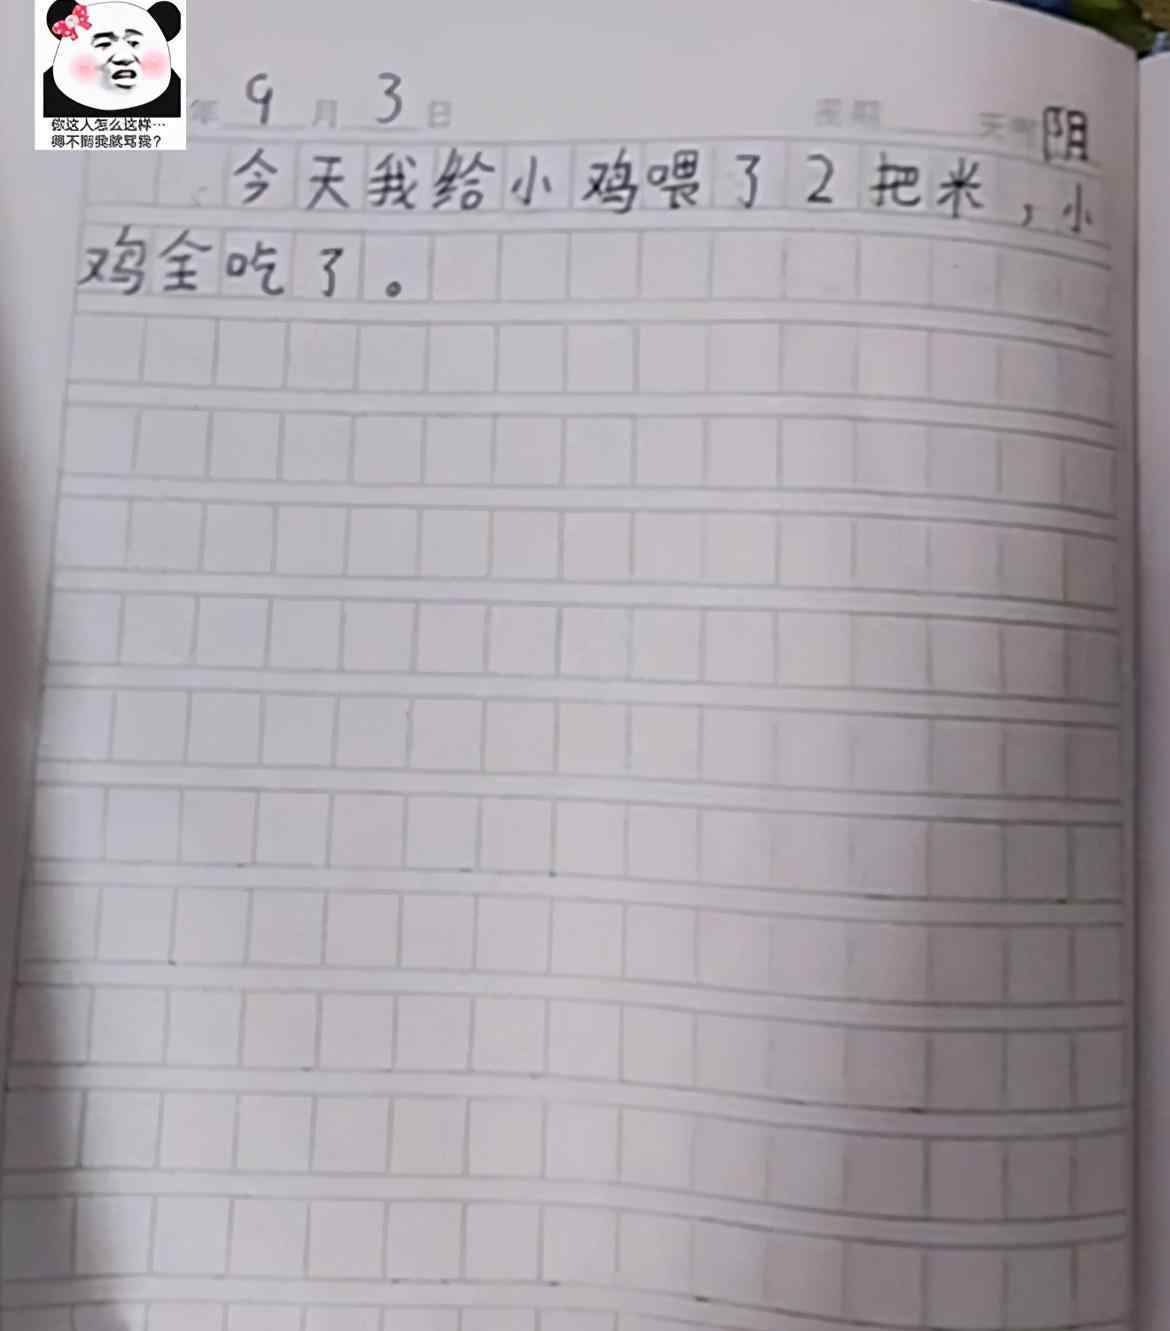 你这人怎么这样…
年 9 月 3 日 星期 天气 阴
今天我给小鸡喂了2把米，小
鸡全吃了。